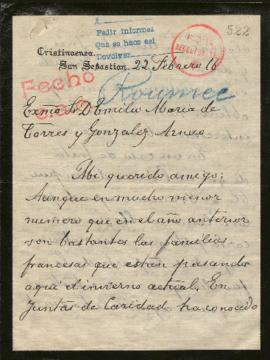 522
A
Pedir informes
que se haga así
Devolver
Cristinaenea.
San Sebastian. 22 Febrero 16
Fecho
Roumee
Excmo Sr D Emilio María de
Torres y Gonzalez Arnao
Mi querido amigo:
Aunque en mucho menor
numero que en el año anterior
son bastantes las familias
francesas que estan pasando
aqui el invierno actual. En
Juntas de Caridad ha conocido